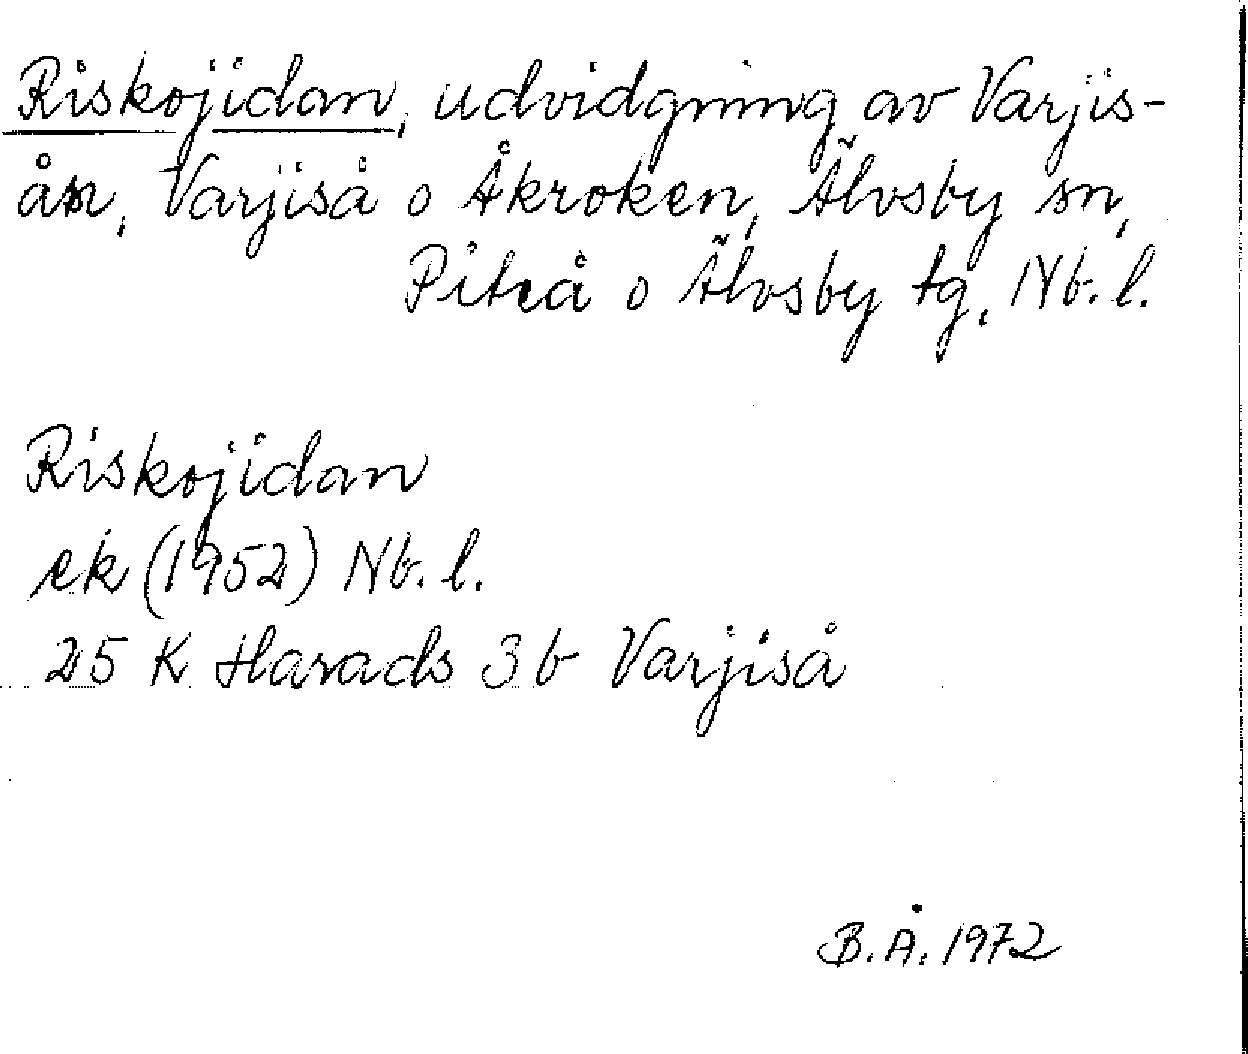 Riskojidan, udvidgning av Varjis-
ån, Varjiså o Åkroken, Älvsby sn,
Piteå o Älvsby tg, Nb. l.
Riskojidan
ek (1952) Nb. l.
25 K Harads 3 b Varjiså
B. Å. 1972